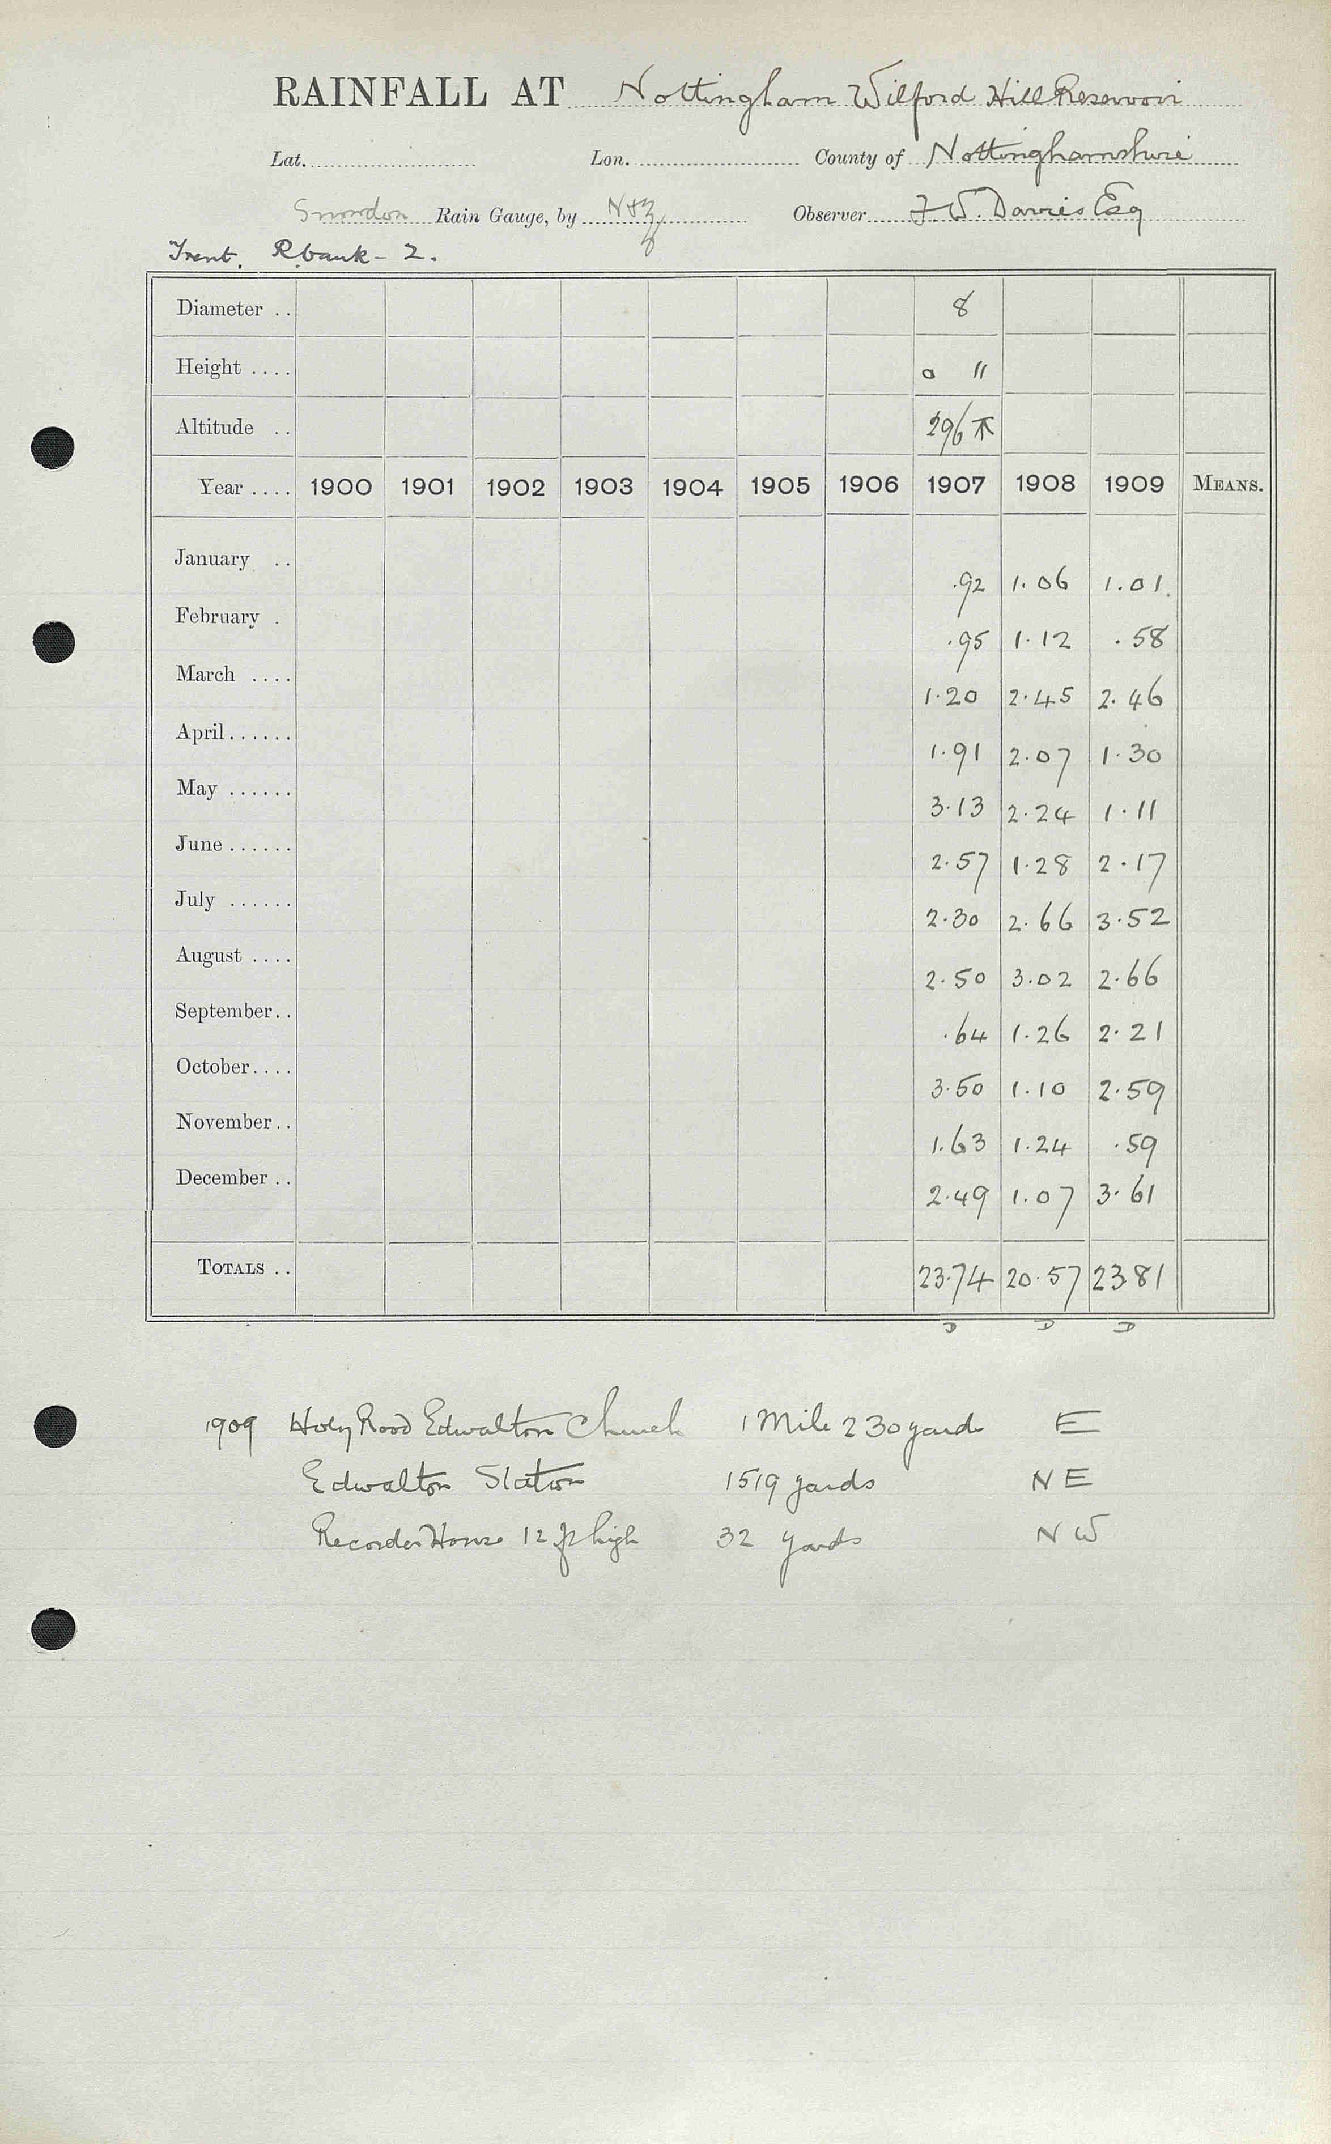 RAINFALL AT Nottingham Wilford Hill Reservoir
Lat. Lon. County of Nottinghamshire
Snowdon Rain Gauge, by N & Z Observer J. W. Davies Esq
Trent. R. bank - 2.
Diameter .. 8
Height .... 0 "
Altitude .. 296
Year .... 1900 1901 1902 1903 1904 1905 1906 1907 1908 1909 MEANS.
January .. .92 1.06 1.01
February . .95 1.12 .58
March .... 1.20 2.45 2.46
April...... 1.91 2.07 1.30
May ...... 3.13 2.24 1.11
June...... 2.57 1.28 2.17
July ...... 2.30 2.66 3.52
August .... 2.50 3.02 2.66
September.. .64 1.26 2.21
October.... 3.50 1.10 2.59
November.. 1.63 1.24 .59
December .. 2.49 1.07 3.61
TOTALS .. 23.74 20.57 23.81
D D D
1909 Holy Rood Edwalton Church 1 Mile 230 yards E
Edwalton Station 1519 yards NE
Recorder House 12 ft high 32 yards NW